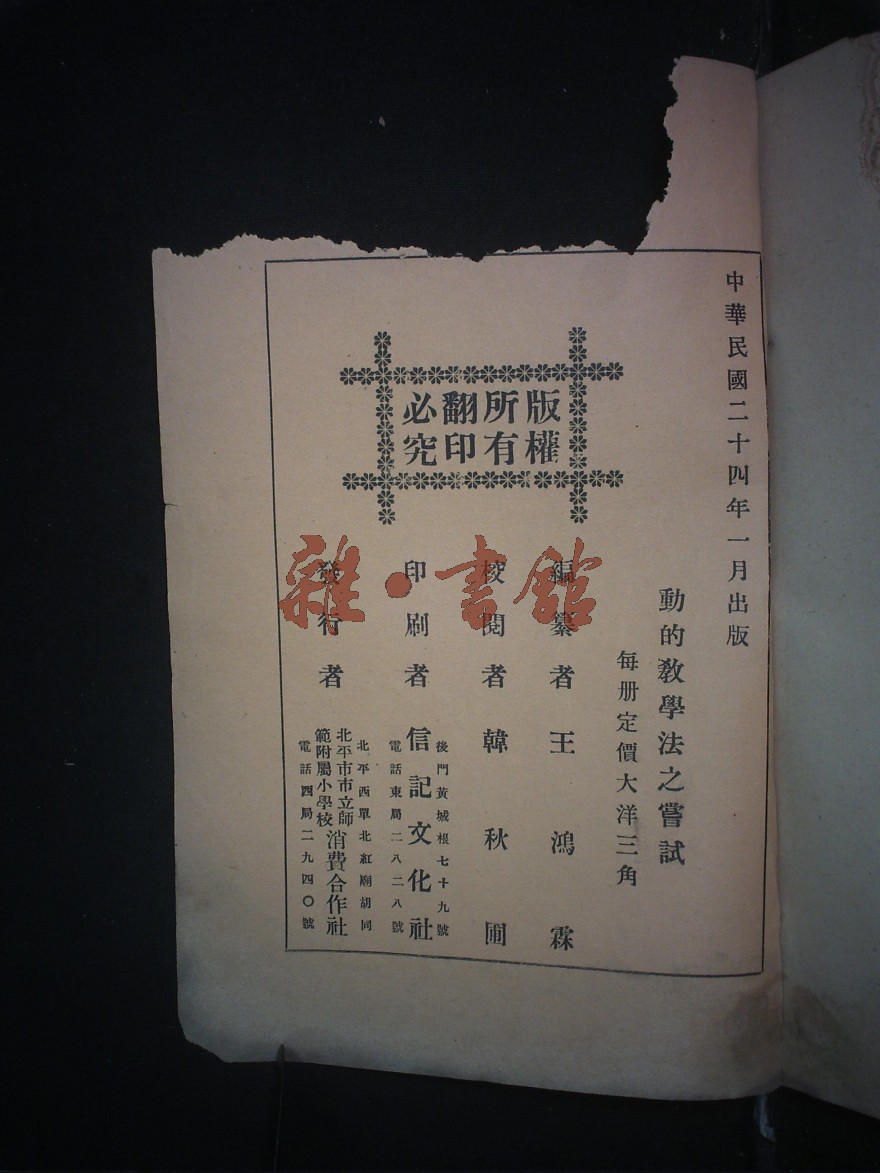 中華民國二十四年一月出版
動的教學法之嘗試
每册定價大洋三角
版權所有翻印必究
編纂者王鴻霖
校閱者韓秋圃
後門黃城根七十九號
印刷者信記文化社
電話東局二八二八號
北平西單北紅廟胡同
發行者北平市市立師範附屬小學校消費合作社
電話四局二九四〇號
雜·書館